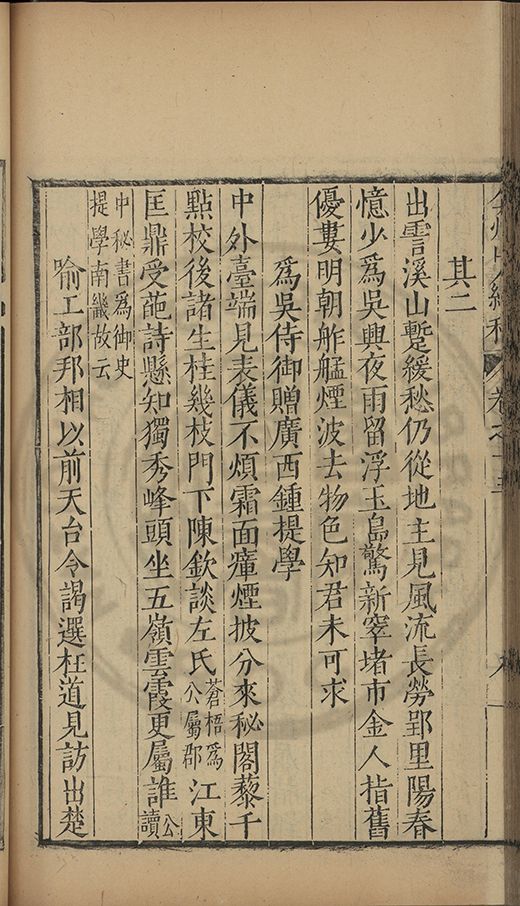 其二
出霅溪山蹔緩愁仍從地主見風流長勞郢里陽春
憶少為吳興夜雨留浮玉島驚新窣堵市金人指舊
優婁明朝舴艋煙波去物色知君未可求
為吳侍御贈廣西鍾提學
中外臺端見表儀不煩霜面瘴煙披分來秘閣藜千
點校後諸生桂幾枝門下陳欽談左氏蒼梧為公屬郡江東
匡鼎受葩詩懸知獨秀峰頭坐五嶺雲霞更屬誰公讀
中秘書為御史
提學南畿故云
喻工部邦相以前天台令謁選枉道見訪出楚